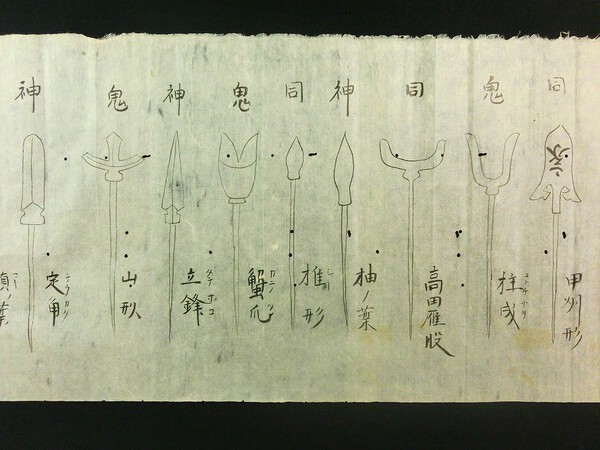 同
甲州形
鬼
柱成
同
高田雁股
神
柚ノ葉
同
椎形
鬼
蟹爪
神
立鋒
タテホコ
鬼
山形
神
定角
ノ葉